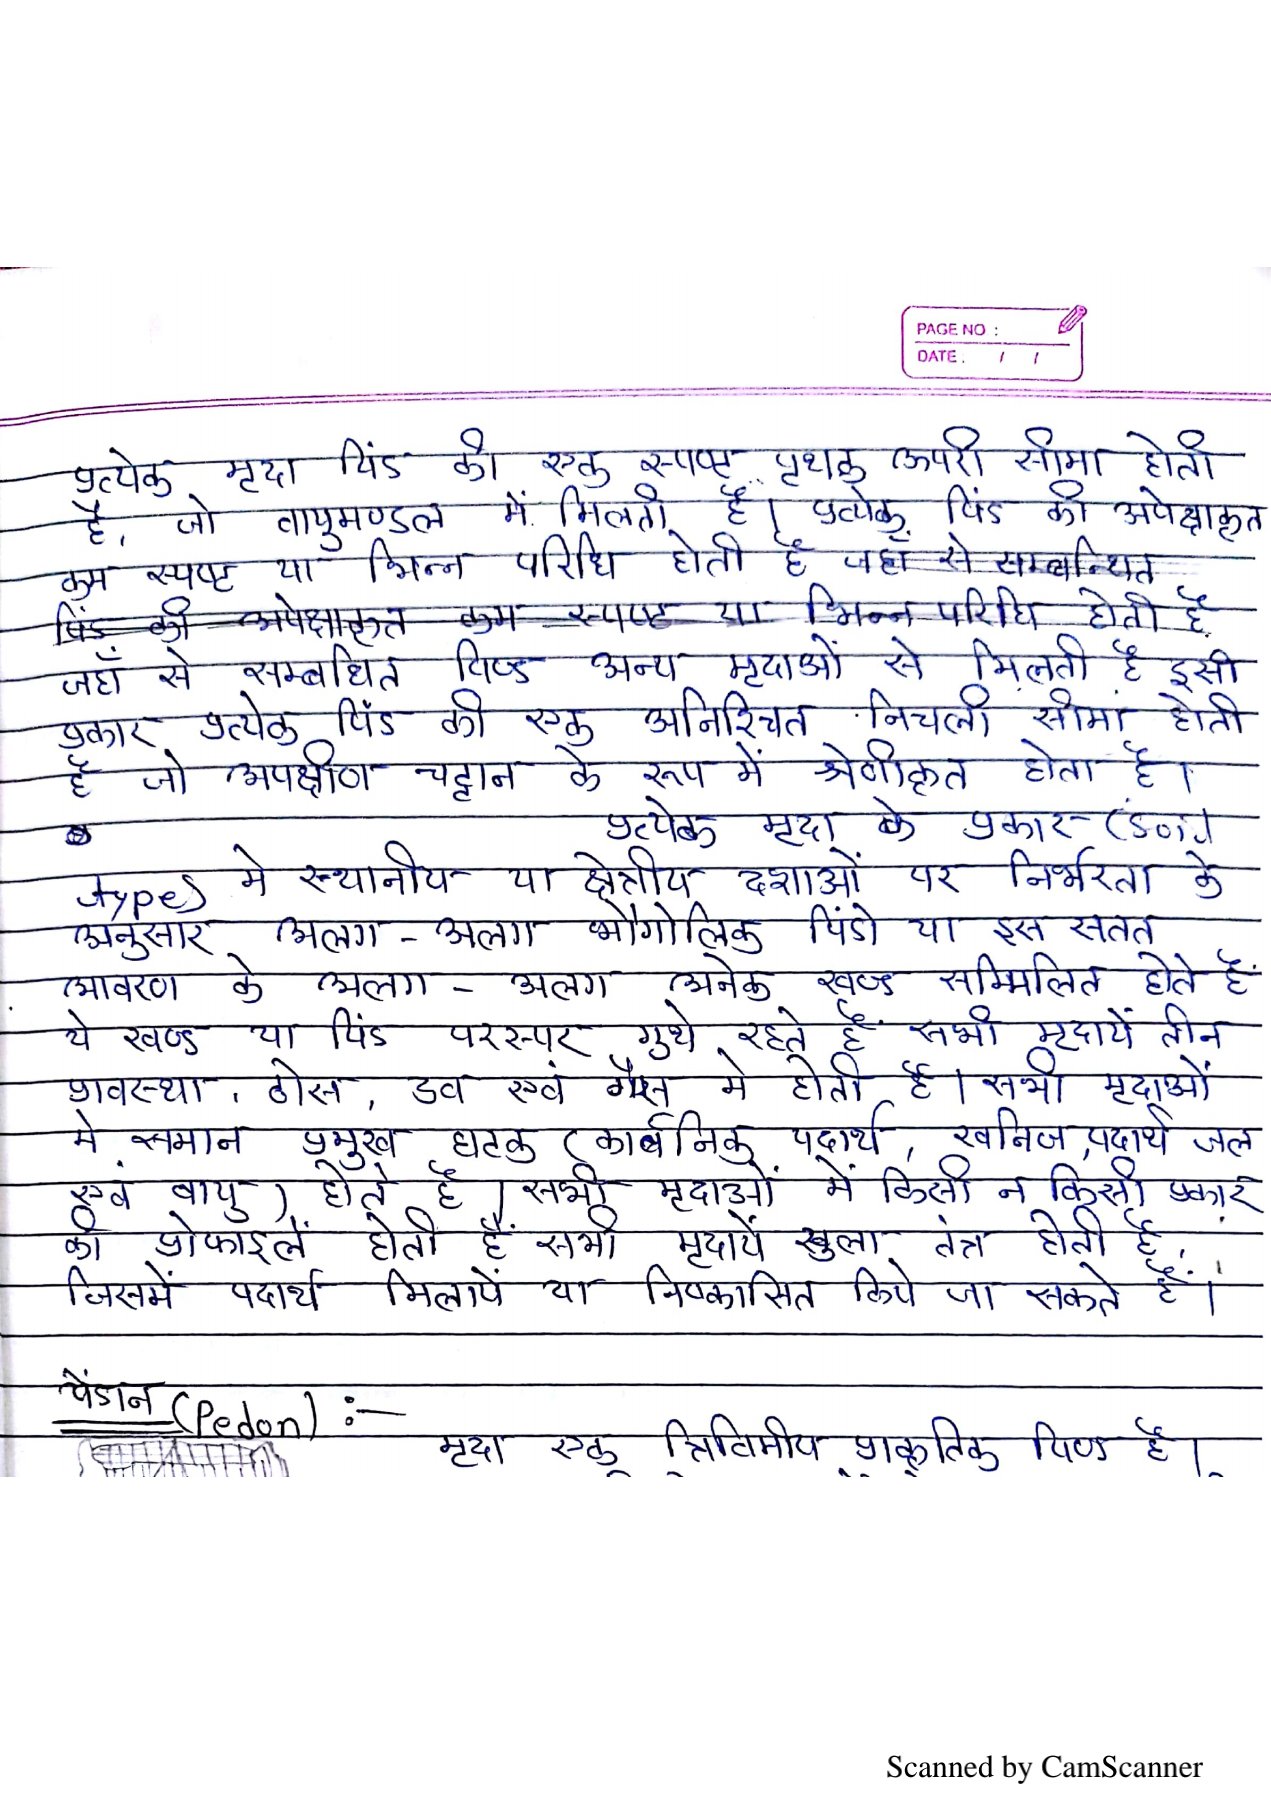 PAGE NO :
DATE : / /
प्रत्येक मृदा पिंड की एक स्पष्ट पृथक ऊपरी सीमा होती
है, जो वायुमण्डल में मिलती है। प्रत्येक पिंड की अपेक्षाकृत
कम स्पष्ट या भिन्न परिधि होती है जहाँ से सम्बन्धित
पिंड की अपेक्षाकृत कम स्पष्ट या भिन्न परिधि होती है
जहाँ से सम्बधित पिण्ड अन्य मृदाओं से मिलती है इसी
प्रकार प्रत्येक पिंड की एक अनिश्चित निचली सीमा होती
है जो अपक्षीण चट्टान के रूप में श्रेणीकृत होता है।
प्रत्येक मृदा के प्रकार (Soil
types मे स्थानीय या क्षेत्रीय दशाओं पर निर्भरता के
अनुसार अलग - अलग भौगोलिक पिंडो या इस सतत
आवरण के अलग - अलग अनेक खण्ड सम्मिलित होते हैं
ये खण्ड या पिंड परस्पर गुथे रहते हैं सभी मृदायें तीन
प्रावस्था, ठोस, द्रव एवं गैस मे होती है। सभी मृदाओं
मे समान प्रमुख घटक (कार्बनिक पदार्थ, खनिज पदार्थ जल
एवं वायु) होते है। सभी मृदाओं में किसी न किसी प्रकार
की प्रोफाइलें होती हैं सभी मृदायें खुला तंत्र होती है,
जिसमें पदार्थ मिलायें या निष्कासित किये जा सकते हैं।
पेंडान (Pedon) :-
मृदा एक त्रिविमीय प्राकृतिक पिण्ड है।
Scanned by CamScanner